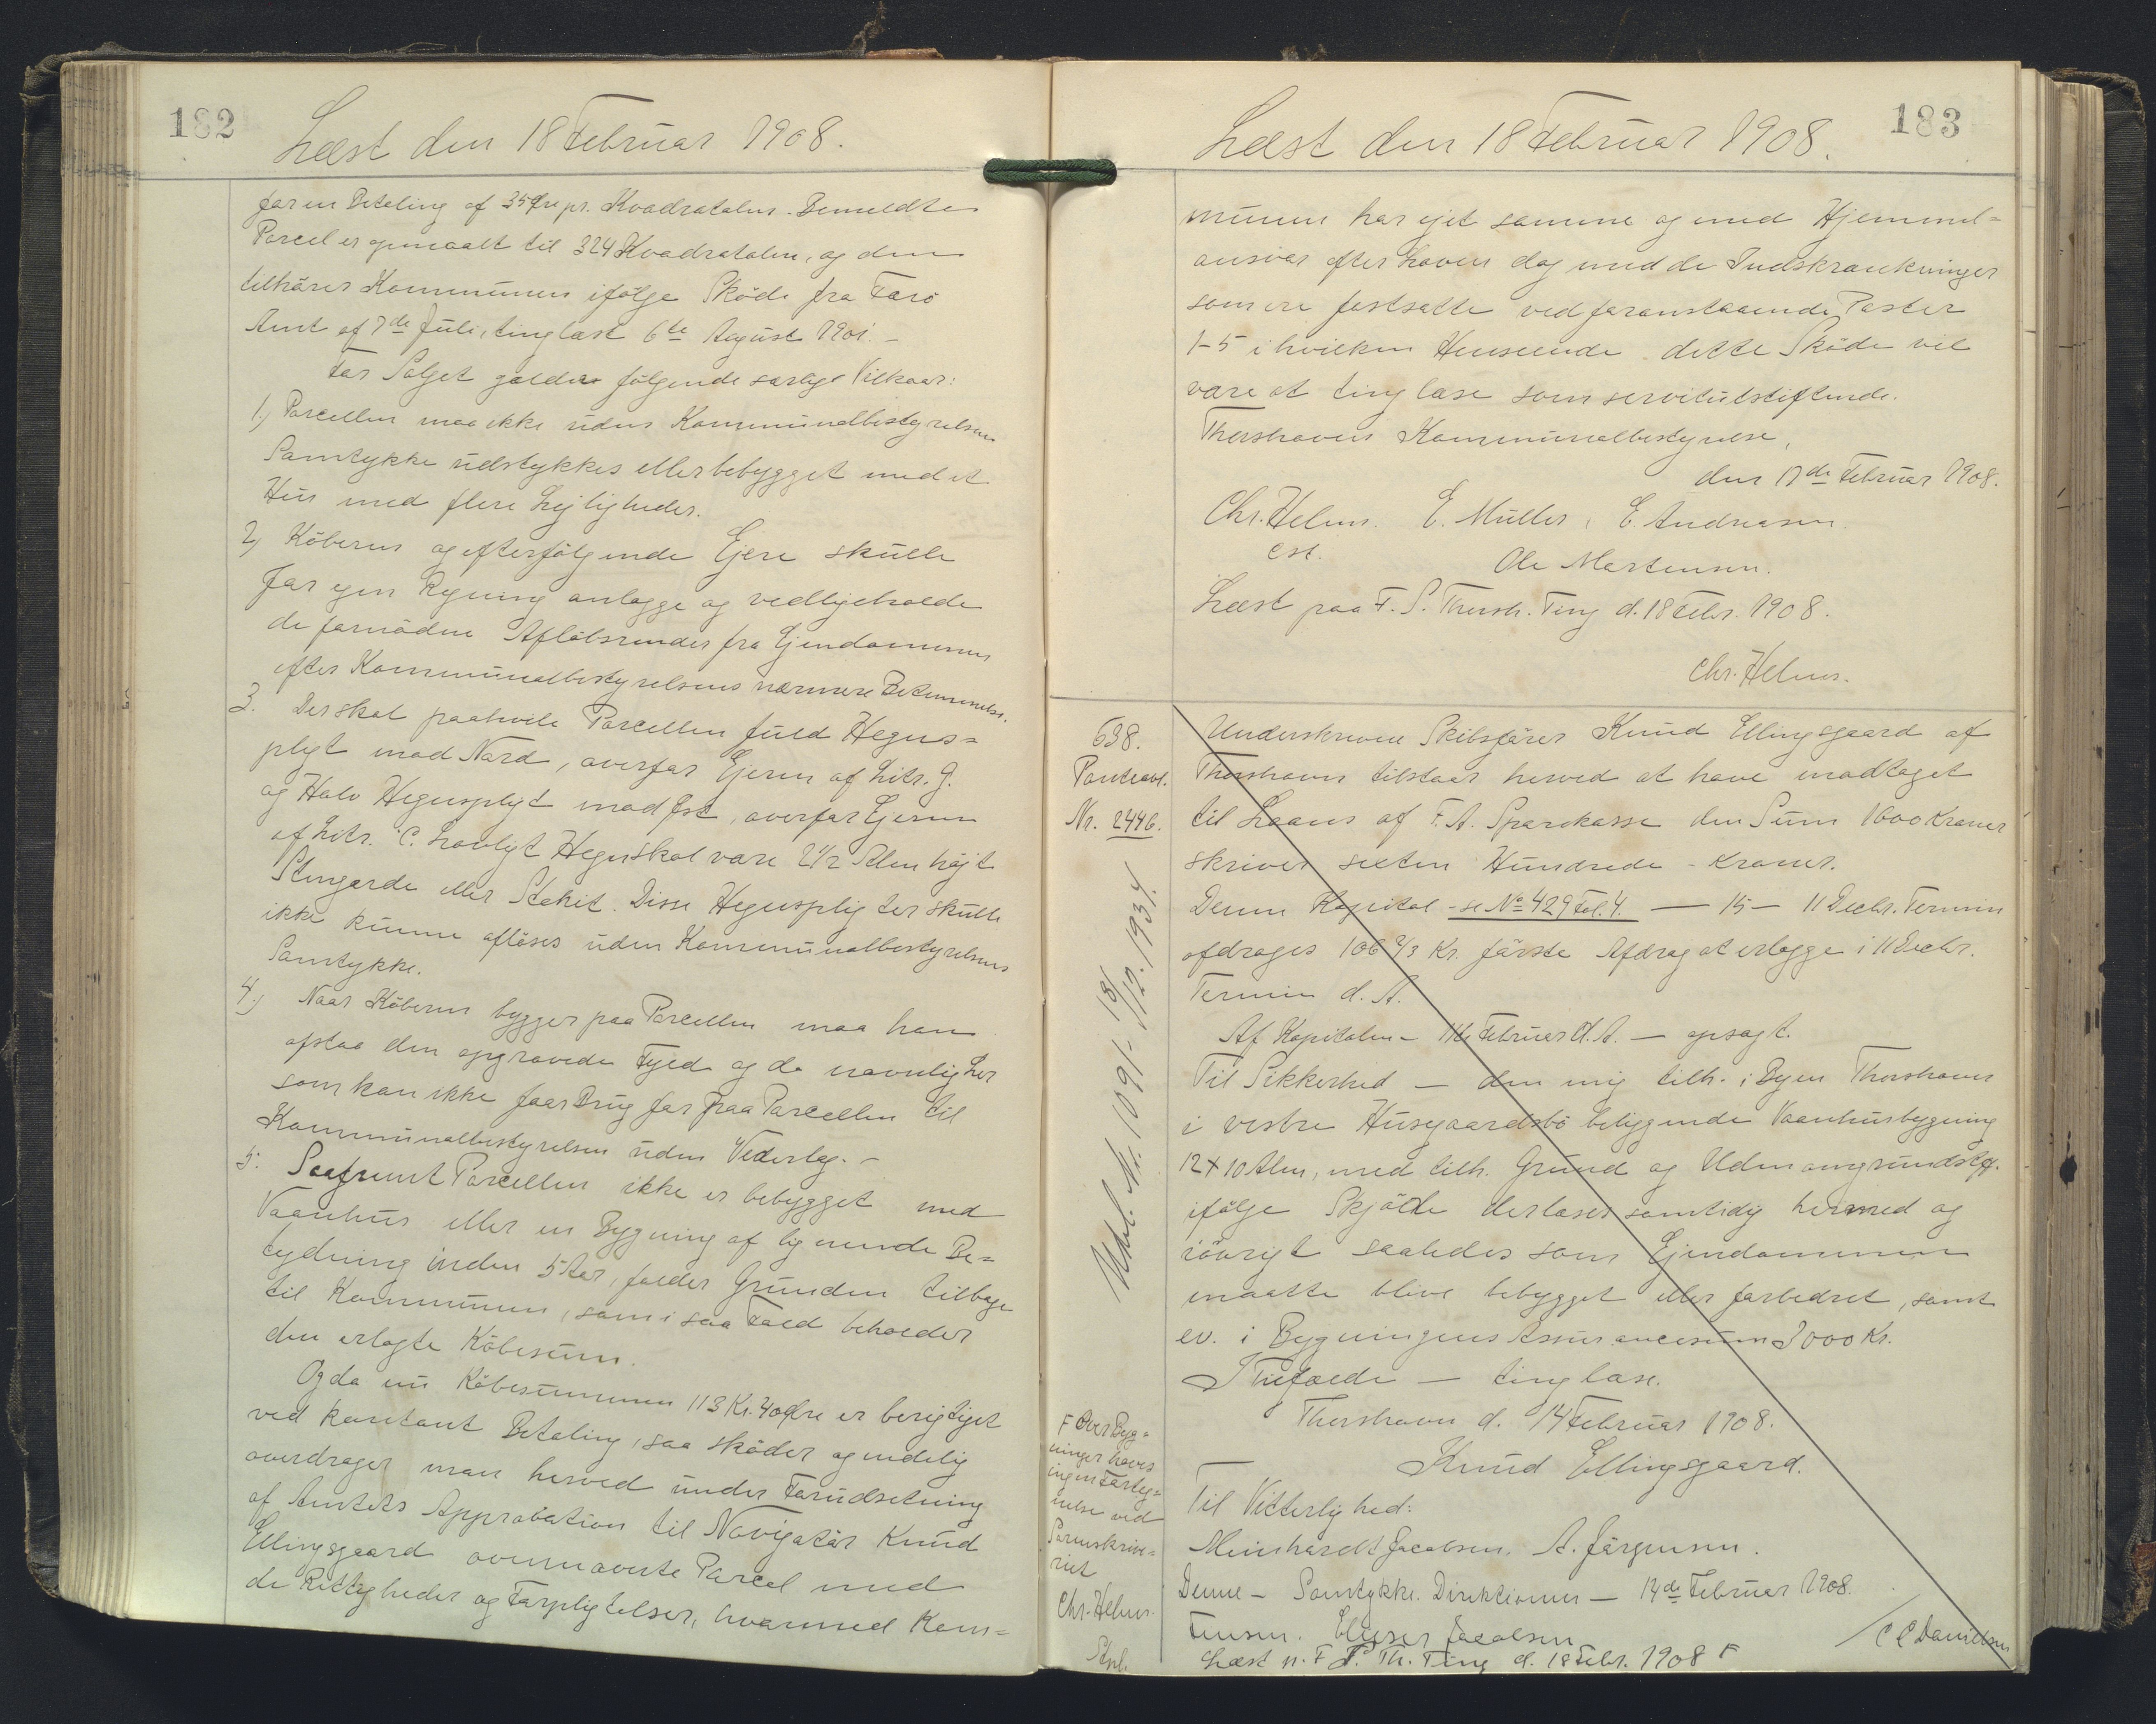 182
Læst den 18 Februar 1908.
for en Betaling af 35 Øre pr. Kvadratalen. Bemeldte
Parcel er opmaalt til 324 Kvadratalen, og den
tilhører Kommunen ifølge Skøde fra Færø
Amt af 7de Juli, tinglæst 6te August 1901. –
For Salget gælder følgende særlige Vilkaar:
1.) Parcellen maa ikke uden Kommunalbestyrelsens
Samtykke udstykkes eller bebygget med et
Hus med flere Lejligheder.
2) Køberen og efterfølgende Ejere skulle
for egen Regning anlægge og vedligeholde
de fornødne Afløbsrender fra Ejendommen
efter Kommunalbestyrelsens nærmere Bestemmelse.
3. Der skal paahvile Parcellen fuld Hegns=
pligt mod Nord, overfor Ejeren af Litr. G.
og Halv Hegnspligt mod Øst, overfor Ejeren
af Litr. C. Lovligt Hegn skal være 2 1/2 Alen højt
Stengærde eller Stakit. Disse Hegnspligter skulle
ikke kunne afløses uden Kommunalbestyrelsens
Samtykke.
4.) Naar Køberen bygger paa Parcellen maa han
afstaa den opgravede Fyld og da navnlig Ler
som han ikke faar Brug for paa Parcellen til
Kommunalbestyrelsen uden Vederlag. –
5. Saafremt Parcellen ikke er bebygget med
Vaanhus eller en Bygning af lignende Be=
tydning inden 5 Aar, falder Grunden tilbage
til Kommunen, som i saa Fald beholder
den erlagte Købesum.
Og da nu Købesummen 113 Kr. 40 Øre er berigtiget
ved kontant Betaling, saa skøder og endelig
overdrager man herved under Forudsetning
af Amtets Approbation til Navigatør Knud
Ellingsgaard ovennævnte Parcel med
de Rettigheder og Forpligtelser, hvormed Kom=
183
Læst den 18 Februar 1908.
munen har ejet samme og med Hjemmel=
ansvar efter Loven dog med de Indskrænkninger
som ere fastsatte ved foranstaaende Poster
1-5 i hvilken Henseende dette Skøde vil
være at tinglæse som servitutstiftende.
Thorshavns Kommunalbestyrelse,
den 17de Februar 1908.
Chr. Helms. E. Müller, E. Andreasen
cst.
Ole Mortensen.
Læst paa F. S. Thorsh. Ting d. 18 Febr. 1908.
Chr. Helms.
638.
Panteobl.
Nr. 2446.
Udsl. Nr. 1091 - 13/12. 1934.
Underskrevne Skibsfører Knud Ellingsgaard af
Thorshavn tilstaar herved at have modtaget
til Laans af F. A. Sparekasse den Sum 1600 Kroner
skriver sexten Hundrede Kroner.
Denne Kapital - se No 429 Fol. 4. — 15 — 11 Decbr. Termin
afdrages 106 2/3 Kr. første Afdrag at erlægge i 11 Decbr.
Termin d. A.
Af Kapitalen – 11te Februar d. A. — opsagt.
Til Sikkerhed — den mig tilh. i Byen Thorshavn
i vestre Husgaardsbø beliggende Vaanhusbygning
12 x 10 Alen, med tilh. Grund og Udenomsgrundstk.
ifølge Skjøde der læses samtidig hermed og
iøvrigt saaledes som Ejendommen
maatte blive bebygget eller forbedret, samt
ev. i Bygningens Assurancesum 3000 Kr.
I Tilfælde — tinglæse.
Thorshavn d. 14 Februar 1908.
Knud Ellingsgaard.
Til Vitterlighed:
Meinhardt Jacobsen. A. Jørgensen.
Denne — Samtykke. Direktionen — 14de Februar 1908.
Finsen. Elieser Jacobsen / C C Danielsen
Læst p. F. S. Th. Ting d. 18 Febr. 1908 F
F Over Byg=
ninger haves
ingen Forteg=
nelse ved
Sorenskrive=
riet
Chr. Helms.